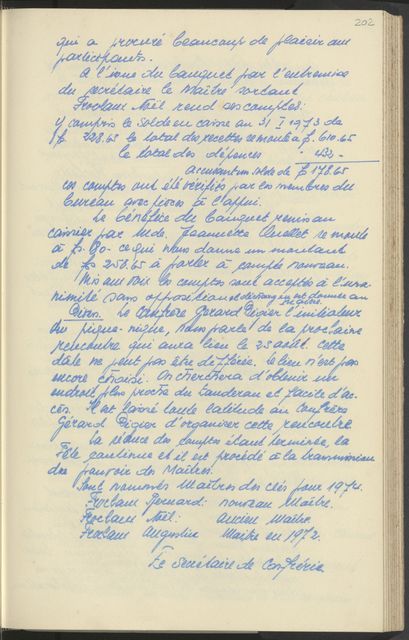 202
qui a procuré beaucoup de plaisir aux
participants.
A l'issue du banquet par l'entremise
du secrétaire le Maître sortant
Froclaux Noël rend ses comptes:
y compris le solde en caisse au 31 I 1973 de
fr. 228.65 le total des recettes se monte à fr. 610.65
le total des dépenses " 432.-
accusant un solde de fr. 178.65
ces comptes ont été vérifiés par les membres du
bureau avec pièces à l'appui.
Le bénéfice du banquet remis au
caissier par Mde. Jeannette se monte
à fr. 80.- ce qui nous donne un montant
de fr. 258.65 à porter à compte nouveau.
Mis aux voix les comptes sont acceptés à l'una-
nimité sans opposition et décharge en est donnée au
Divers. Le Confrère Gérard Digier l'initiateur
du pique-nique, nous parle de la prochaine
rencontre qui aura lieu le 25 août. cette
date ne peut pas être différée. le lieu n'est pas
encore choisi. On cherchera d'obtenir un
endroit plus proche du Landeron et facile d'ac-
cès. Il est laissé toute latitude au Confrère
Gérard Digier d'organiser cette rencontre
La séance des comptes étant terminée, la
Fête continue et il est procédé à la transmission
des pouvoirs des Maîtres.
Sont nommés Maîtres des clés pour 1974.
Froclaux Bernard: nouveau Maître.
Froclaux Noël: ancien Maître
Froclaux Augustin Maître en 1972.
Le Secrétaire de Confrérie